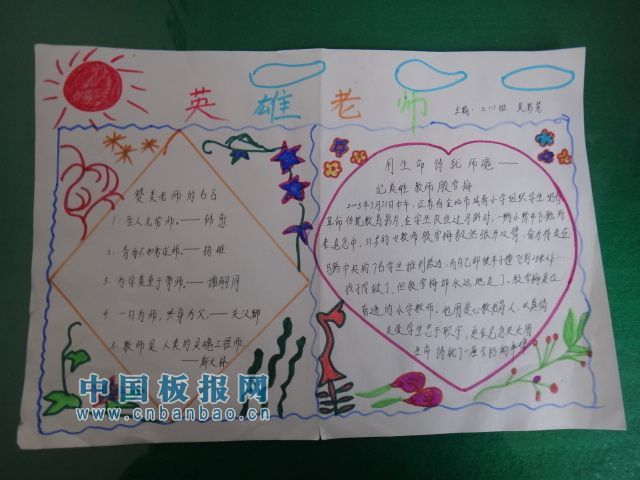 英雄老师
主编：二(1)班
赞美老师的名言
1. 圣人无常师。——韩愈
2. 务学不如务求师。——扬雄
3. 为学莫重于尊师。——谭嗣同
4. 一日为师，终身为父。——关汉卿
5. 教师是人类的灵魂工程师。
——斯大林
用生命铸就师魂——
记英雄教师殷雪梅
2005年3月31日中午，江苏省金坛市城南小学组织学生观看
革命传统教育影片，在学生队伍过马路时，一辆小轿车飞驰而
来危急中，51岁的女教师殷雪梅毅然张开双臂，奋力将走在
马路中央的7名学生推到路边，而自己却被车子撞飞到25米外…
孩子得救了，但殷雪梅却永远地走了。殷雪梅是位
普通的小学教师，她用爱心教书育人，以真情
关爱学生忠于职守，更在危急关头用
生命铸就了一座不朽的丰碑
中国板报网
www.cnbanbao.cn